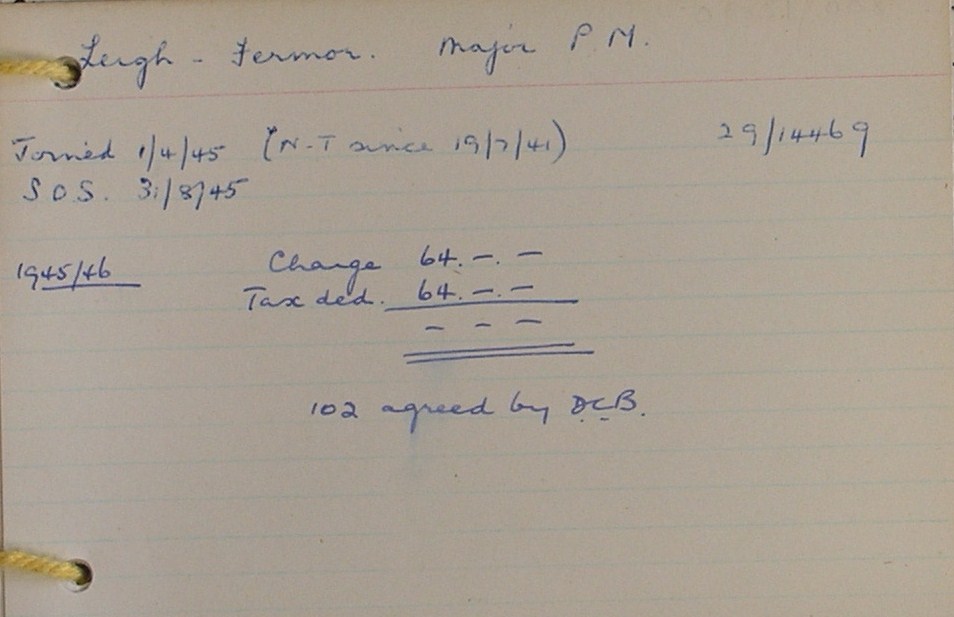 Leigh - Fermor. Major P. M.
Joined 1/4/45 (N-T since 19/7/41) 29/14469
S O S. 31/8/45
1945/46 Charge 64. -. -
Tax ded. 64. -. -
- - -
102 agreed by DCB.